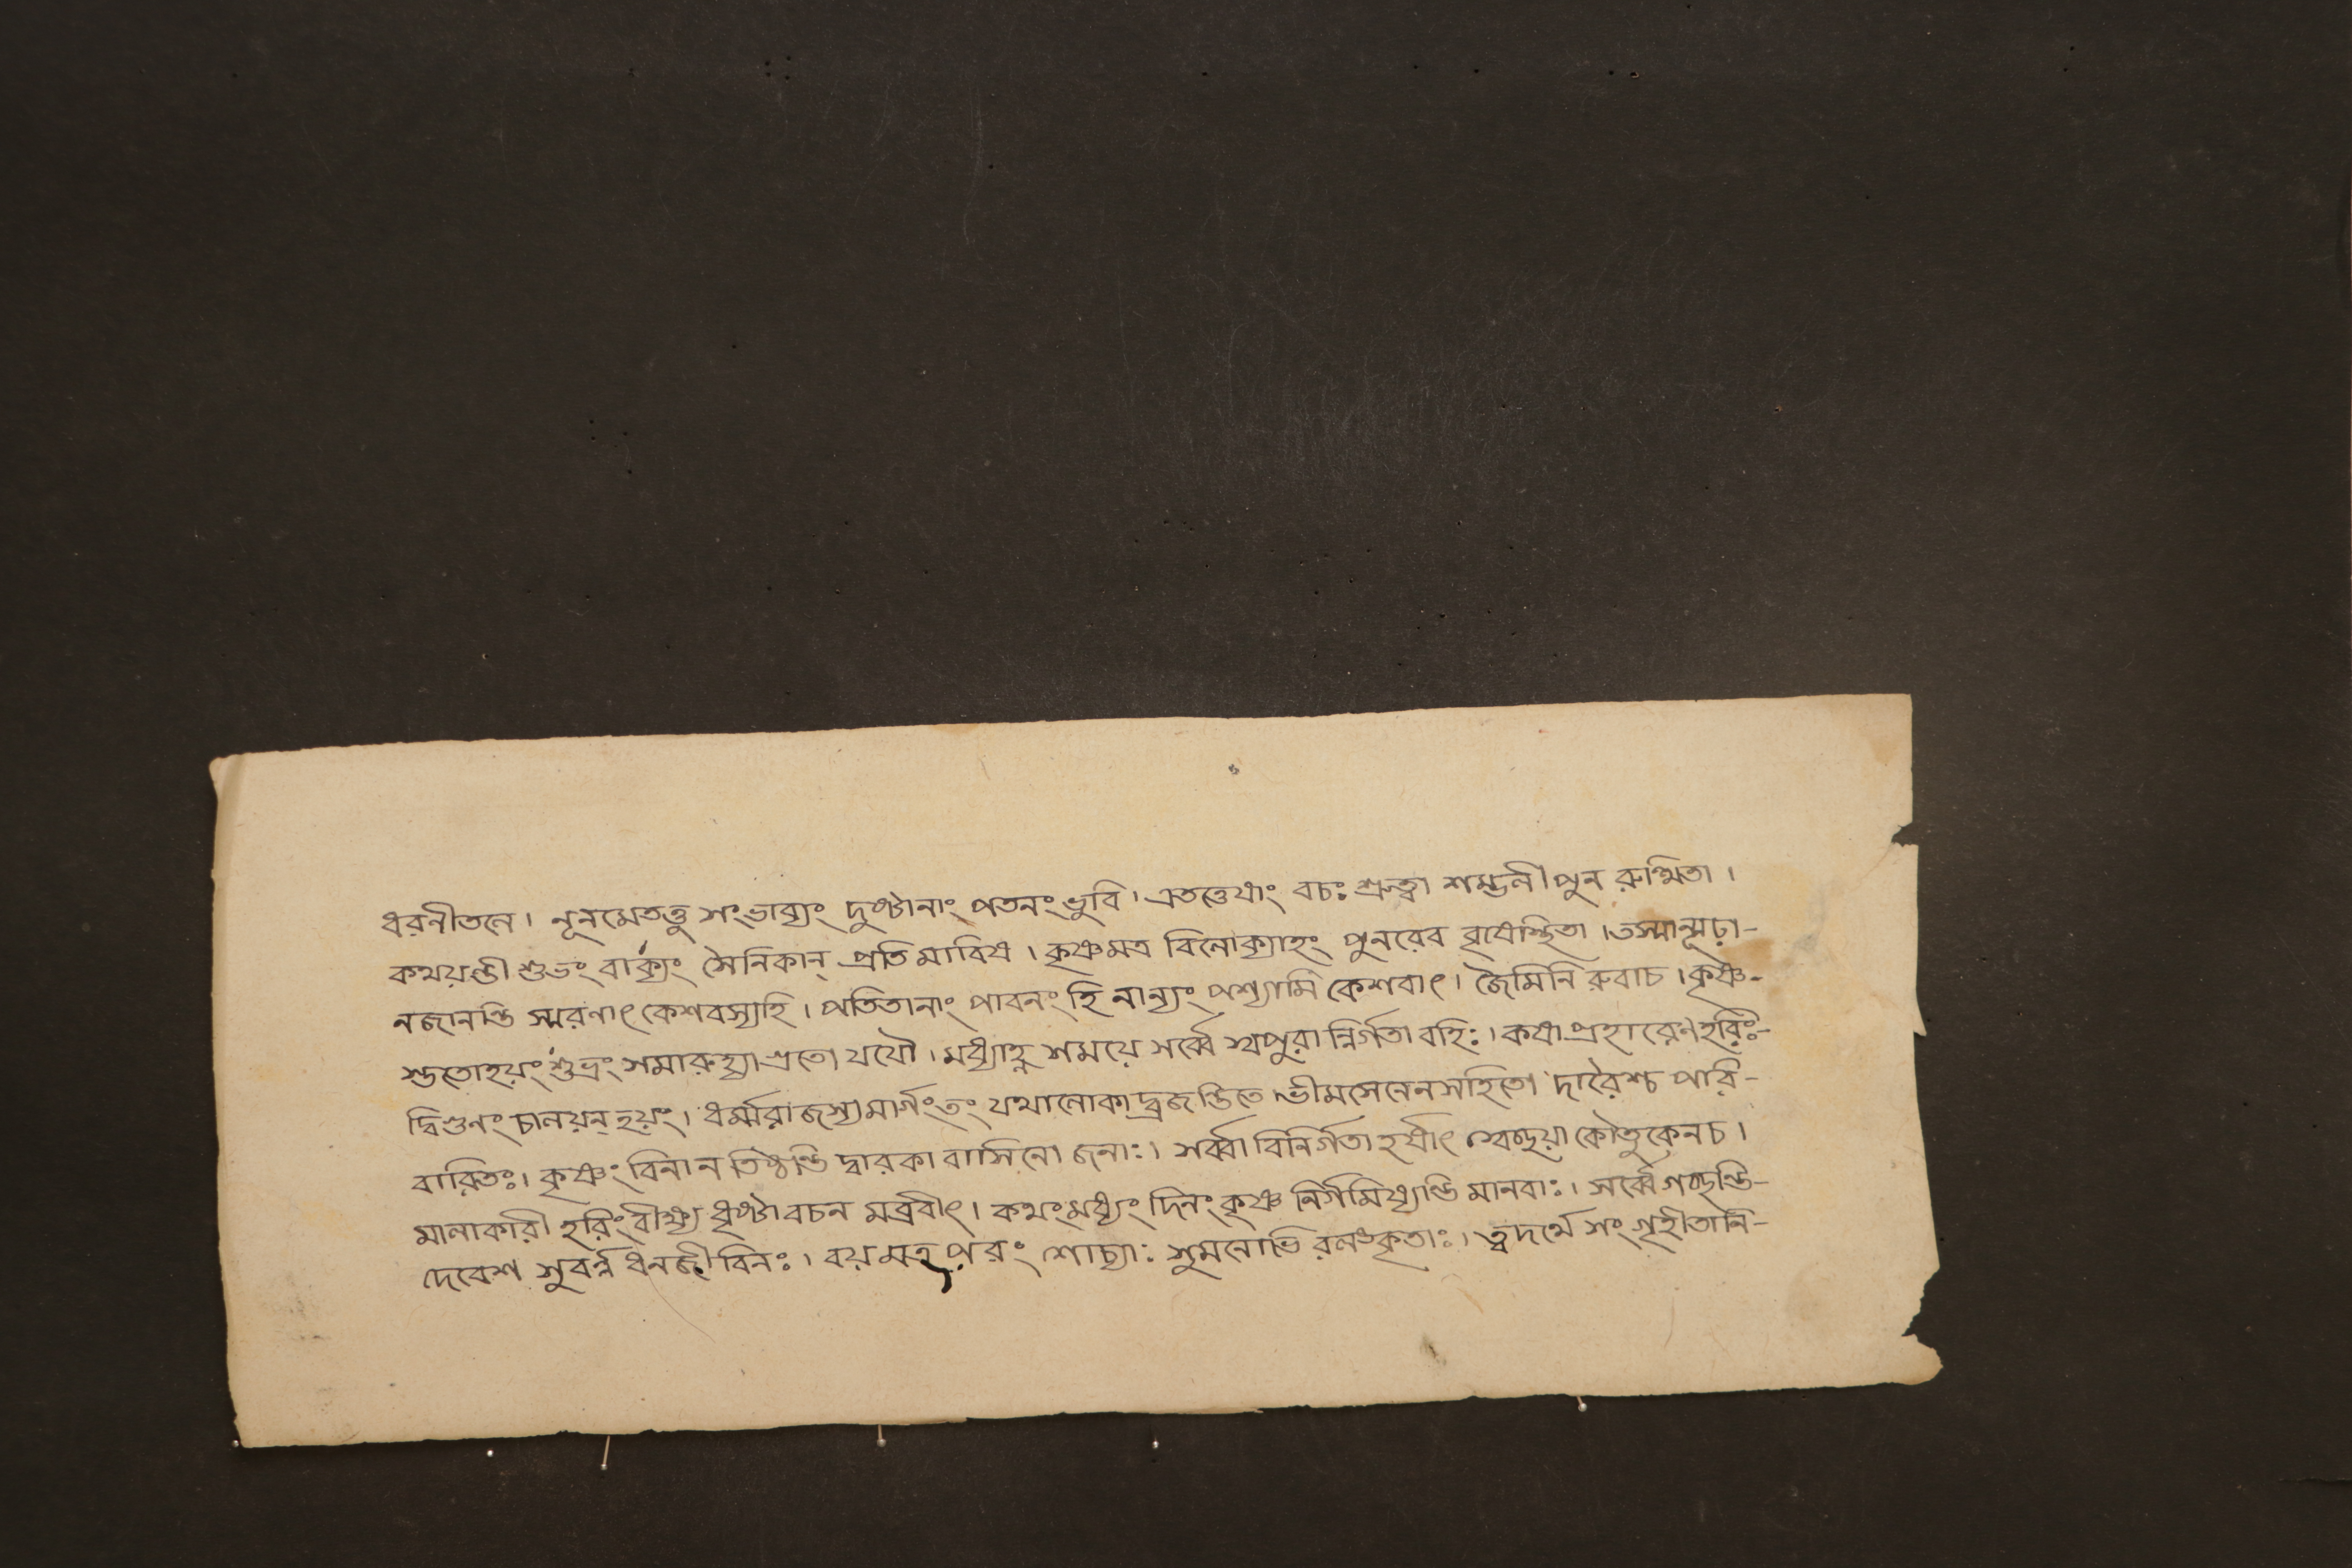 ধরনীতলে। নূনমেতত্তু সংভাব্যং দুষ্টানাং পতনং ভুবি। এতত্তেষাং বচঃ শ্রুত্বা শম্ভলী পুন রুত্থিতা।
কথয়ন্তী শুভং বাক্যং সৈনিকান্ প্রতি মারিষ। কৃষ্ণমত্র বিলোক্যাহং পুনরেব বৃষেস্থিতা। তস্মান্মূঢ়া-
নজানন্তি স্মরণাৎ কেশবস্যহি। পতিতানাং পাবনং হি নান্যং পশ্যামি কেশবাৎ। জৈমিনি রুবাচ। কৃষ্ণ-
স্ততোহয়ং শুভ্রং সমারুহ্যাগ্রতো যযৌ। মধ্যাহ্ন শময়ে সর্ব্বে স্বপুরান্নির্গতা বহিঃ। কষাপ্রহারেণ হরিঃ-
দ্বিগুনং চালয়ন্ হয়ং। ধর্ম্মরাজস্যমার্গং তং যথালোকাদ্ব্রজন্তিতে। ভীমসেনেনসহিতো দারৈশ্চ পরি-
বারিতঃ। কৃষ্ণং বিনা ন তিষ্ঠন্তি দ্বারকা বাসিনো জনাঃ। সর্ব্বা বিনির্গতা হর্ষাৎ স্বেচ্ছয়া কৌতুকেনচ।
মালাকারী হরিং বীক্ষ্য ধৃষ্টা বচন মব্রবীৎ। কথং মধ্যং দিনং কৃষ্ণ নির্গমিষ্যন্তি মানবাঃ। সর্ব্বে গচ্ছন্তি-
দেবেশ সুবর্ন্ন ধনজীবিনঃ। বয়মত্র পরং শোচ্যাঃ সুমনোভি রলঙ্কৃতাঃ। ত্বদর্থে সং গৃহীতানি-